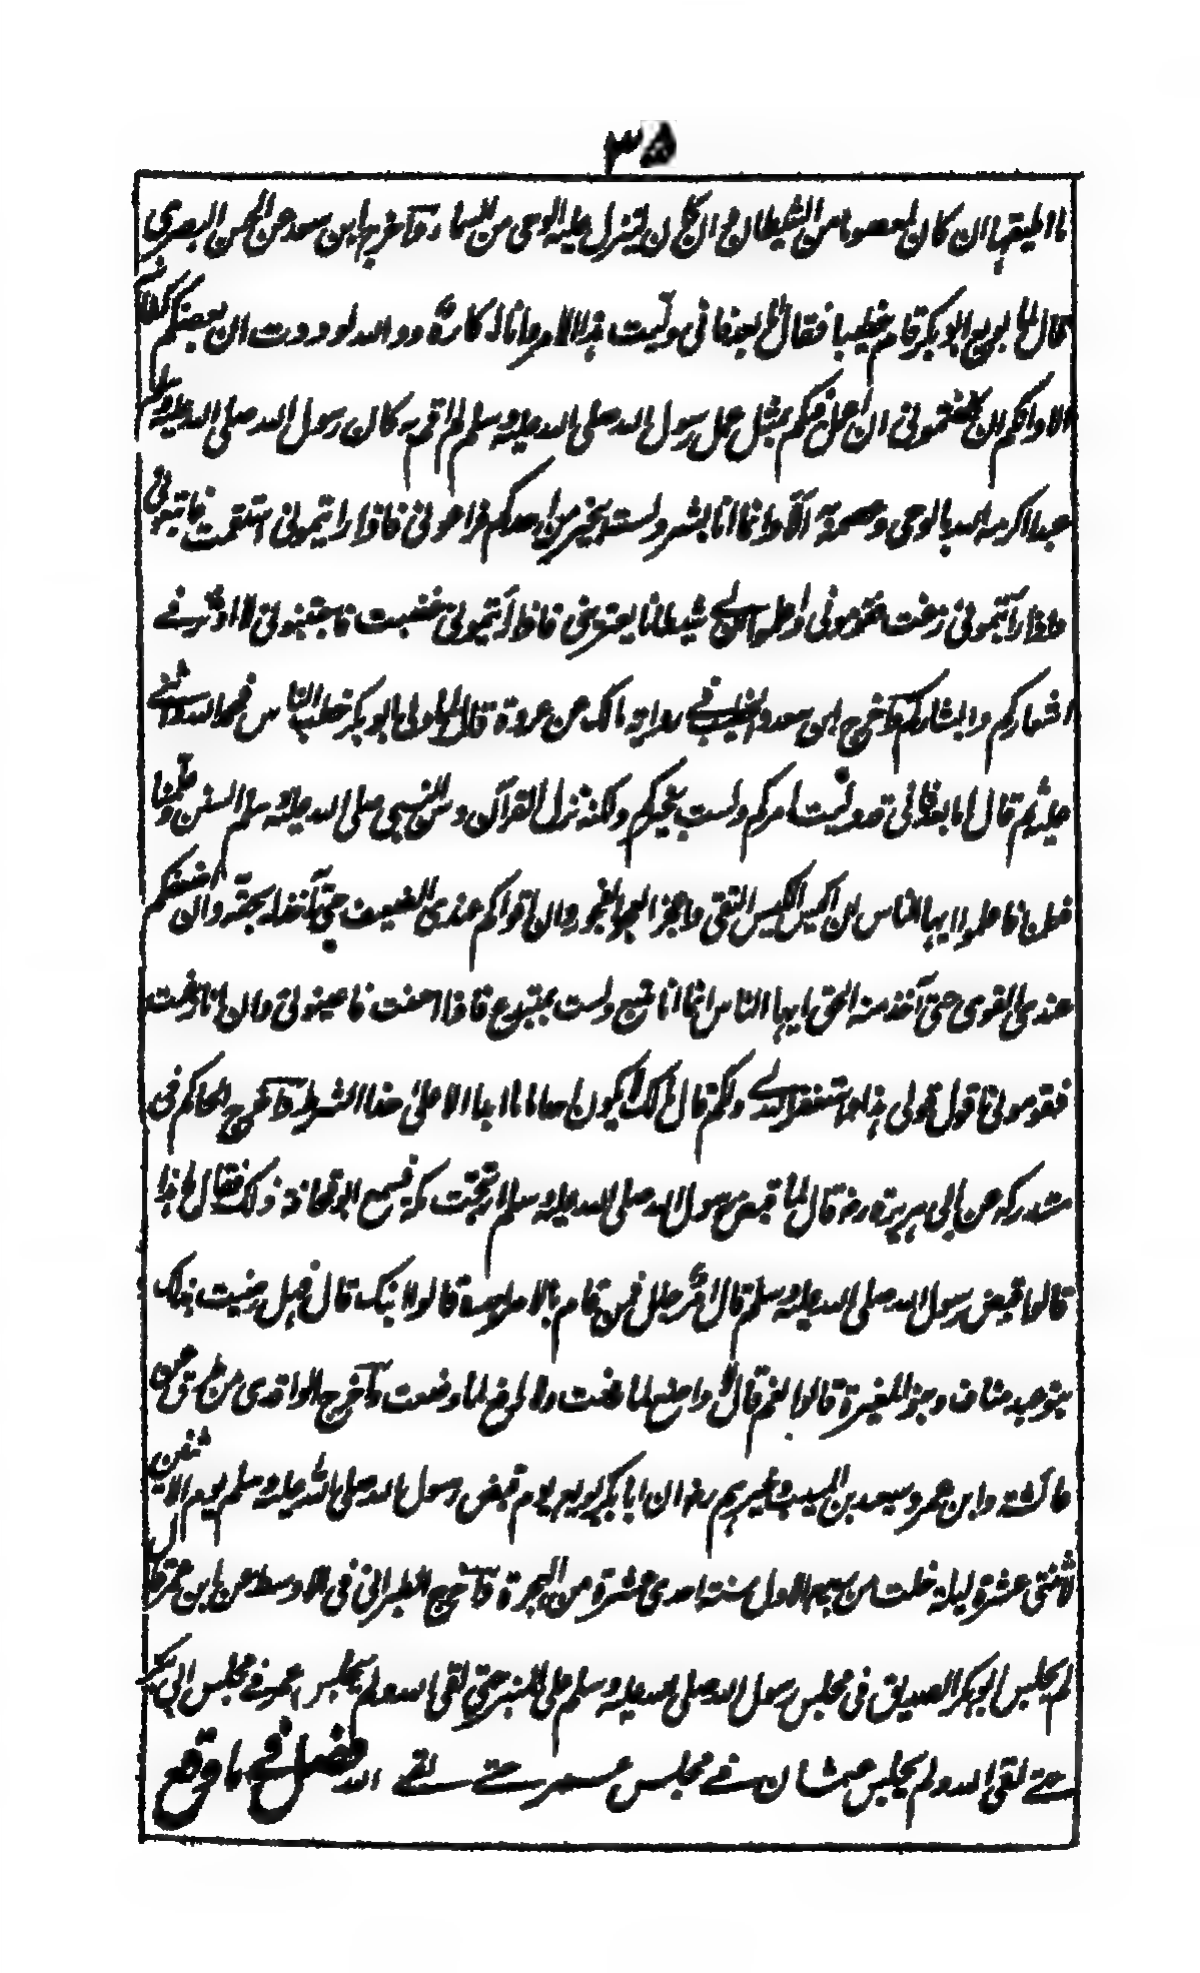 ٣٥
ما اطيقها ان كان لمعصوما من الشيطان وان كان لينزل عليه الوحي من السماء وآخرج ابن سعد عن الحسن البصري
قال لما بويع ابو بكر قام خطيبا فقال اما بعد فاني وليت هذا الامر وانا له كاره ووالله لوددت ان بعضكم كفانيه
الا وانكم ان كلفتموني ان اعمل فيكم بمثل عمل رسول الله صلى الله عليه وسلم لم اقم به كان رسول الله صلى الله عليه وسلم
عبدا اكرمه الله بالوحي وعصمه به الا وانما انا بشر ولست بخير من احدكم فراعوني فاذا رايتموني استقمت فاتبعوني
واذا رأيتموني زغت فقوموني واعلموا ان لي شيطانا يعتريني فاذا رأيتموني غضبت فاجتنبوني لا اوثر في
اشعاركم وابشاركم وآخرج ابن سعد والخطيب في رواية مالك عن عروة قال لما ولي ابو بكر خطب الناس فحمد الله واثنى
عليه ثم قال اما بعد فاني قد وليت امركم ولست بخيركم ولكنه نزل القرآن وسن النبي صلى الله عليه وسلم السنن وعلمنا
فعلمنا فاعلموا ايها الناس ان اكيس الكيس التقى واعجز العجز الفجور وان اقواكم عندي الضعيف حتى آخذ له بحقه وان اضعفكم
عندي القوي حتى آخذ منه الحق ايها الناس انما انا متبع ولست بمبتدع فاذا احسنت فاعينوني وان انا زغت
فقوموني اقول قولي هذا واستغفر الله لي ولكم قال مالك لا يكون احد اماما ابدا الا على هذا الشرط وآخرج الحاكم في
مستدركه عن ابي هريرة رضه قال لما قبض رسول الله صلى الله عليه وسلم ارتجت مكة فسمع ابو قحافة ذلك فقال ما هذا
قالوا قبض رسول الله صلى الله عليه وسلم قال امر جلل فمن قام بالامر بعده قالوا ابنك قال فهل رضيت بذلك
بنو عبد مناف وبنو المغيرة قالوا نعم قال لا واضع لما رفعت ولا رافع لما وضعت وآخرج الواقدي من طرق عن
عائشة وابن عمر وسعيد بن المسيب وغيرهم رضه ان ابا بكر بويع يوم قبض رسول الله صلى الله عليه وسلم يوم الاثنين
لاثنتي عشرة ليلة خلت من ربيع الاول سنة احدى عشرة من الهجرة وآخرج الطبراني في الاوسط عن ابن عمر قال
لم يجلس ابو بكر الصديق في مجلس رسول الله صلى الله عليه وسلم على المنبر حتى لقي الله ولم يجلس عمر في مجلس ابي بكر
حتى لقي الله ولم يجلس عثمان في مجلس عمر حتى لقي الله فصل في ما وقع